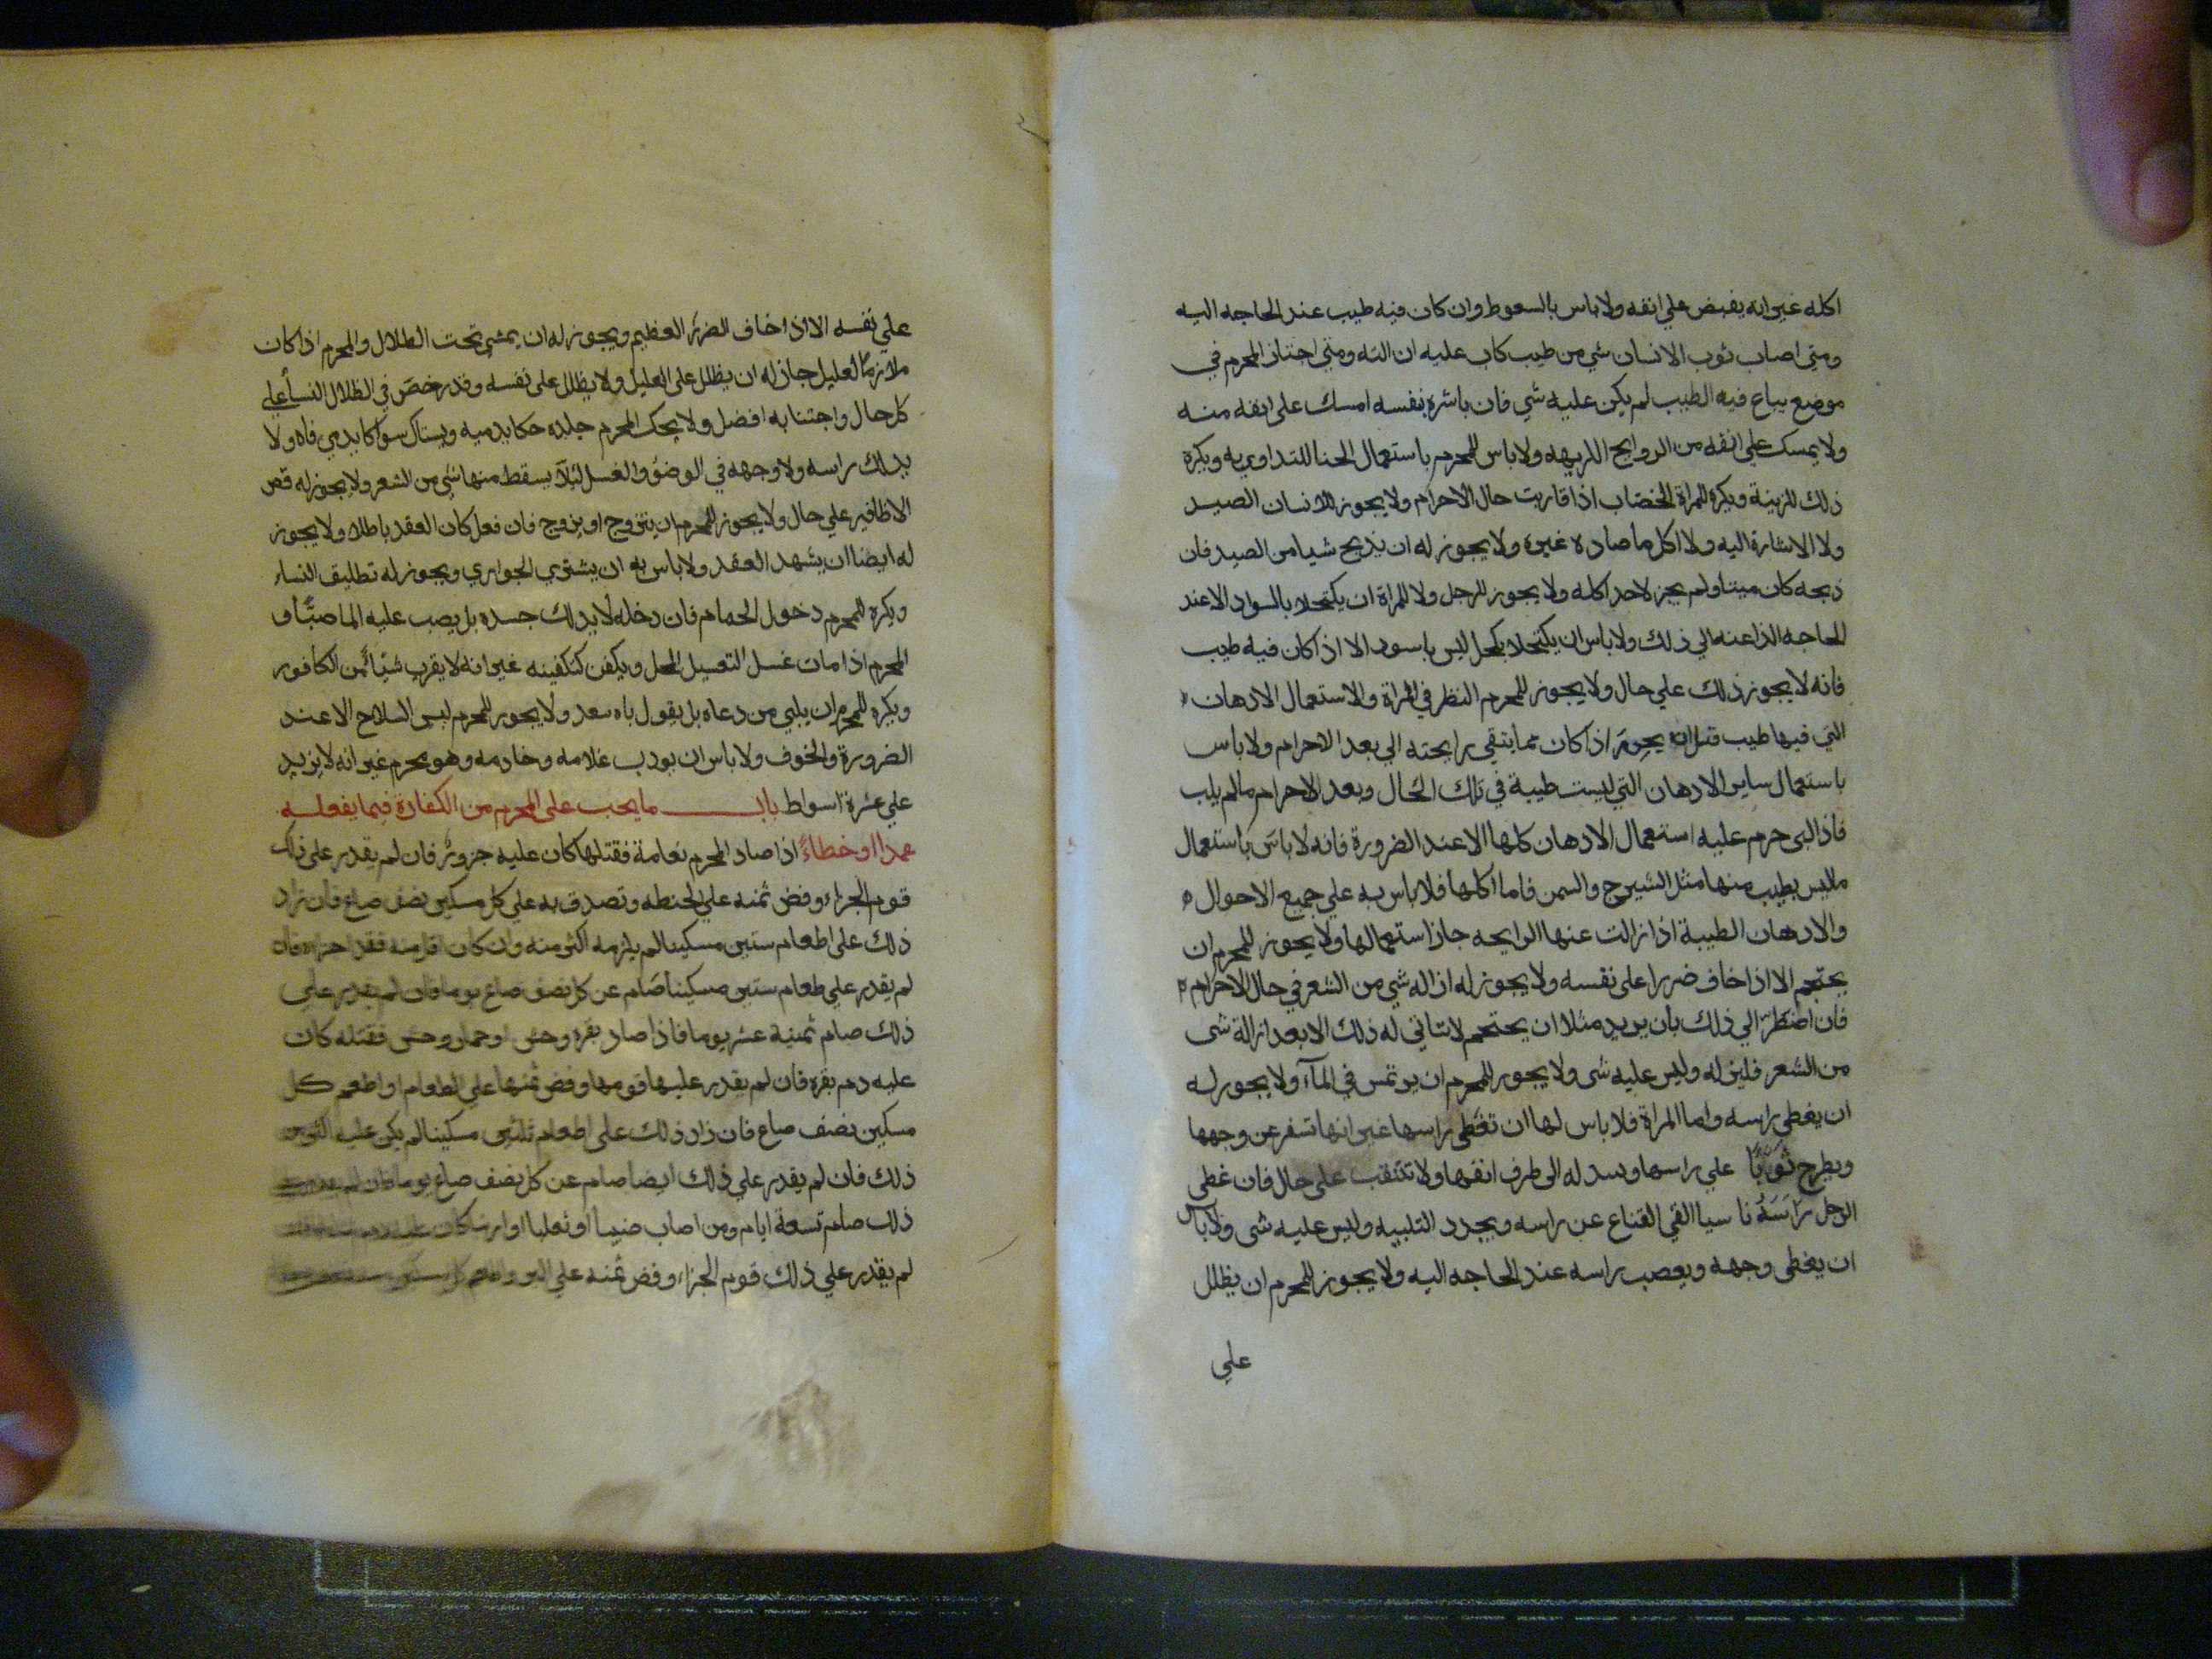 اكله غير انه يقبض علي انفه ولا باس بالسعوط وان كان فيه طيب عند الحاجه اليه
ومتي اصاب ثوب الانسان شي من طيب كان عليه ازالته ومتي اجتاز المحرم في
موضع يباع فيه الطيب لم يكن عليه شي فان باشره بنفسه امسك علي انفه منه
ولا يمسك علي انفه من الروايح الكريهه ولا باس للمحرم باستعمال الحنا للتداوي به ويكره
ذلك للزينة ويكره للمراة الخضاب اذا قاربت حال الاحرام ولا يجوز للانسان الصيد
ولا الاشارة اليه ولا اكل ما صاده غيره ولا يجوز له ان يذبح شيا من الصيد فان
ذبحه كان ميتا ولم يجز لاحد اكله ولا يجوز للرجل ولا للمراة ان يكتحلا بالسواد الا عند
الحاجه الداعيه الي ذلك ولا باس ان يكتحلا بكحل ليس باسود الا اذا كان فيه طيب
فانه لا يجوز ذلك علي حال ولا يجوز للمحرم النظر في المراة والاستعمال الادهان
التي فيها طيب قبل ان يحرم اذا كان مما يتقي رايحته الي بعد الاحرام ولا باس
باستعمال ساير الادهان التي ليست طيبة في تلك الحال وبعد الاحرام ما لم يلب
فاذا لبي حرم عليه استعمال الادهان كلها الا عند الضرورة فانه لا باس باستعمال
ما ليس بطيب منها مثل الشيرج والسمن فاما اكلها فلا باس به علي جميع الاحوال
والادهان الطيبة اذا زالت عنها الرايحه جاز استعمالها ولا يجوز للمحرم ان
يحتجم الا اذا خاف ضررا علي نفسه ولا يجوز له ازاله شي من الشعر في حال الاحرام
فان اضطر الي ذلك بان يريد مثلا ان يحتجم لا تتاتي له ذلك الا بعد ازالة شي
من الشعر فليزله وليس عليه شي ولا يجوز للمحرم ان يرتمس في المآء ولا يجوز له
ان يغطي راسه واما المراة فلا باس لها ان تغطي راسها غير انها تسفر عن وجهها
ويطرح ثوبا علي راسها وسدله الي طرف انفها ولا تتنقب علي حال فان غطي
الرجل راسه ناسيا القي القناع عن راسه ويجدد التلبيه وليس عليه شي ولا باس
ان يغطي وجهه ويعصب راسه عند الحاجه اليه ولا يجوز للمحرم ان يظلل
علي
علي نفسه الا اذا خاف الضرر العظيم ويجوز له ان يمشي تحت الظلال والمحرم اذا كان
ملازما لعليل جاز له ان يظلل علي العليل ولا يظلل علي نفسه وقد رخص في الظلال النسأ علي
كل حال واجتنابه افضل ولا يحك المحرم جلده حكا يدميه ويستاك سواكا يدمي فاه ولا
يدلك راسه ولا وجهه في الوضؤ والغسل لئلا يسقط منها شي من الشعر ولا يجوز له قص
الاظافير علي حال ولا يجوز للمحرم ان يتزوج او يزوج فان فعل كان العقد باطلا ولا يجوز
له ايضا ان يشهد العقد ولا باس به ان يشتري الجواري ويجوز له تطليق النساء
ويكره للمحرم دخول الحمام فان دخله لا يدلك جسده بل يصب عليه الما صبًّا و
المحرم اذا مات غسل التغسيل المحل ويكفن كتكفينه غير انه لا يقرب شيئا من الكافور
ويكره للمحرم ان يلبي من دعاه بل يقول ياه سعد ولا يجوز للمحرم لبس السلاح الا عند
الضرورة والخوف ولا باس ان يودب غلامه وخادمه وهو محرم غير انه لا يزيد
علي عشرة اسواط باب ما يجب علي المحرم من الكفارة فيما يفعله
عمدا او خطاءً اذا صاد المحرم نعامة فقتلها كان عليه جزور فان لم يقدر علي ذلك
قوم الجزاء وفض ثمنه علي الحنطه وتصدق به علي كل مسكين نصف صاع فان زاد
ذلك علي اطعام ستين مسكينا لم يلزمه اكثر منه وان كان اقل منه فقد اجزاه فان
لم يقدر علي طعام ستين مسكينا صام عن كل نصف صاع يوما فان لم يقدر علي
ذلك صام ثمنية عشر يوما فاذا صاد بقره وحش او حمار وحش فقتله كان
عليه دم بقره فان لم يقدر عليها قومها وفض ثمنها علي الطعام واطعم كل
مسكين نصف صاع فان زاد ذلك علي اطعام ثلثين مسكينا لم يكن عليه اكثر من
ذلك فان لم يقدر علي ذلك ايضا صام عن كل نصف صاع يوما فان لم يقدر علي
ذلك صام تسعة ايام ومن اصاب ضبيا او ثعلبا او ارنبا كان
لم يقدر علي ذلك قوم الجزاء وفض ثمنه علي البر واطعم كل مسكين